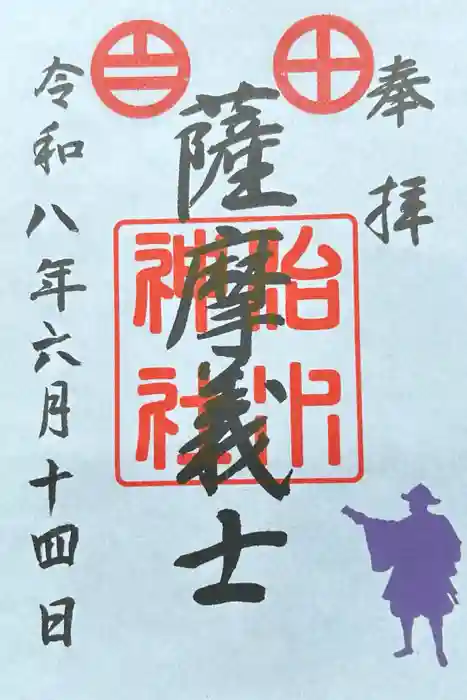 奉拝
薩摩義士
治水
神社
令和八年六月十四日